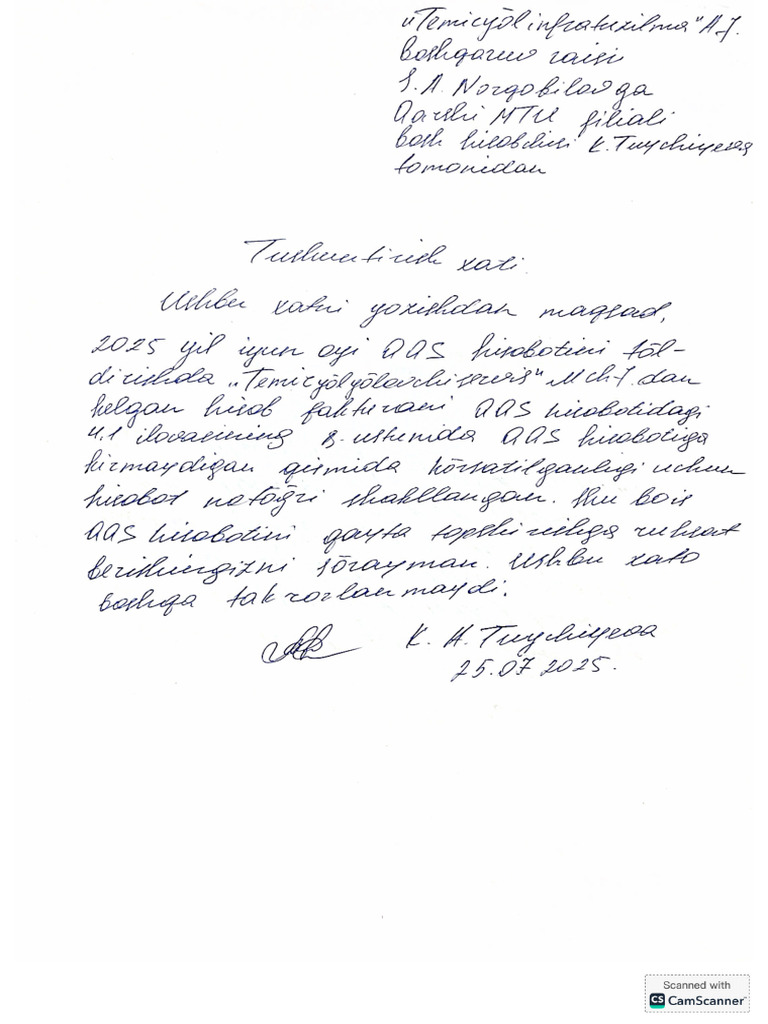 „Temiryŏl infratuzilma" A.J.
boshqaruv raisi
S. A. Norqobilovga
Qarshi MTU filiali
bosh hisobchisi K. Tuychiyeva
tomonidan
Tushuntirish xati.
Ushbu xatni yozishdan maqsad,
2025 yil iyun oyi QQS hisobotini tŏl-
dirishda „Temiryŏlyŏlovchiservis" MchJ. dan
kelgan hisob fakturani QQS hisobotidagi
4.1 ilovasining 8-ustunida QQS hisobotiga
kirmaydigan qismida kŏrsatilganligi uchun
hisobot notŏğri shakllangan. Shu bois
QQS hisobotini qayta topshirishga ruhsat
berishingizni sŏrayman. Ushbu xato
boshqa takrorlanmaydi.
K. H. Tuychiyeva
25.07 2025.
Scanned with
CS CamScanner